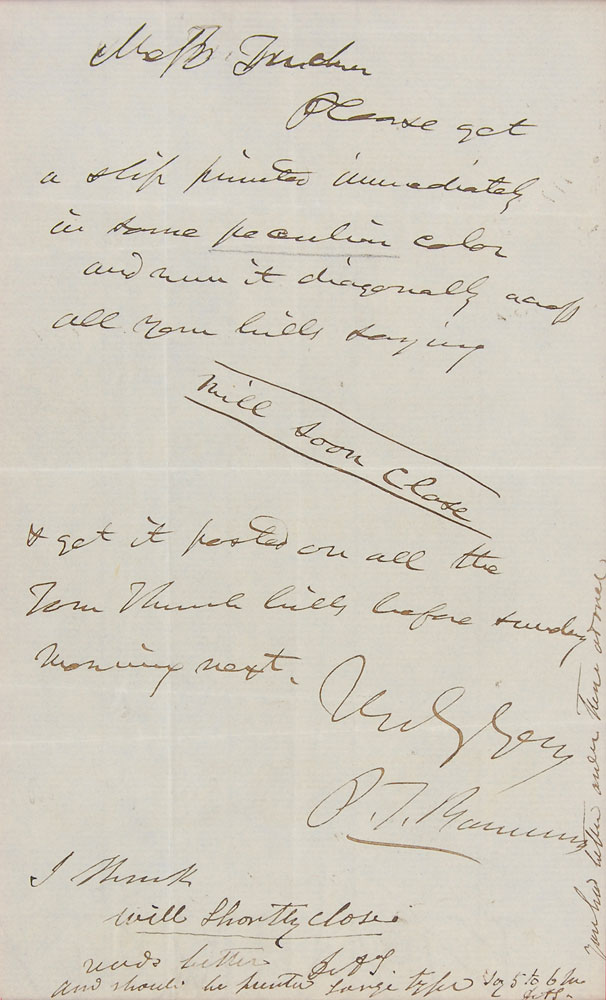 Messrs Tucker
Please get
a slip printed immediately
in some peculiar color
and run it diagonally across
all your bills saying
Will soon close
& get it pasted on all the
Tom Thumb bills before sunday
morning next.
Truly Yours
P. T. Barnum
I think
will shortly close
reads better
and should be printed large type Say 5 to 6 In
you had better order these at once.